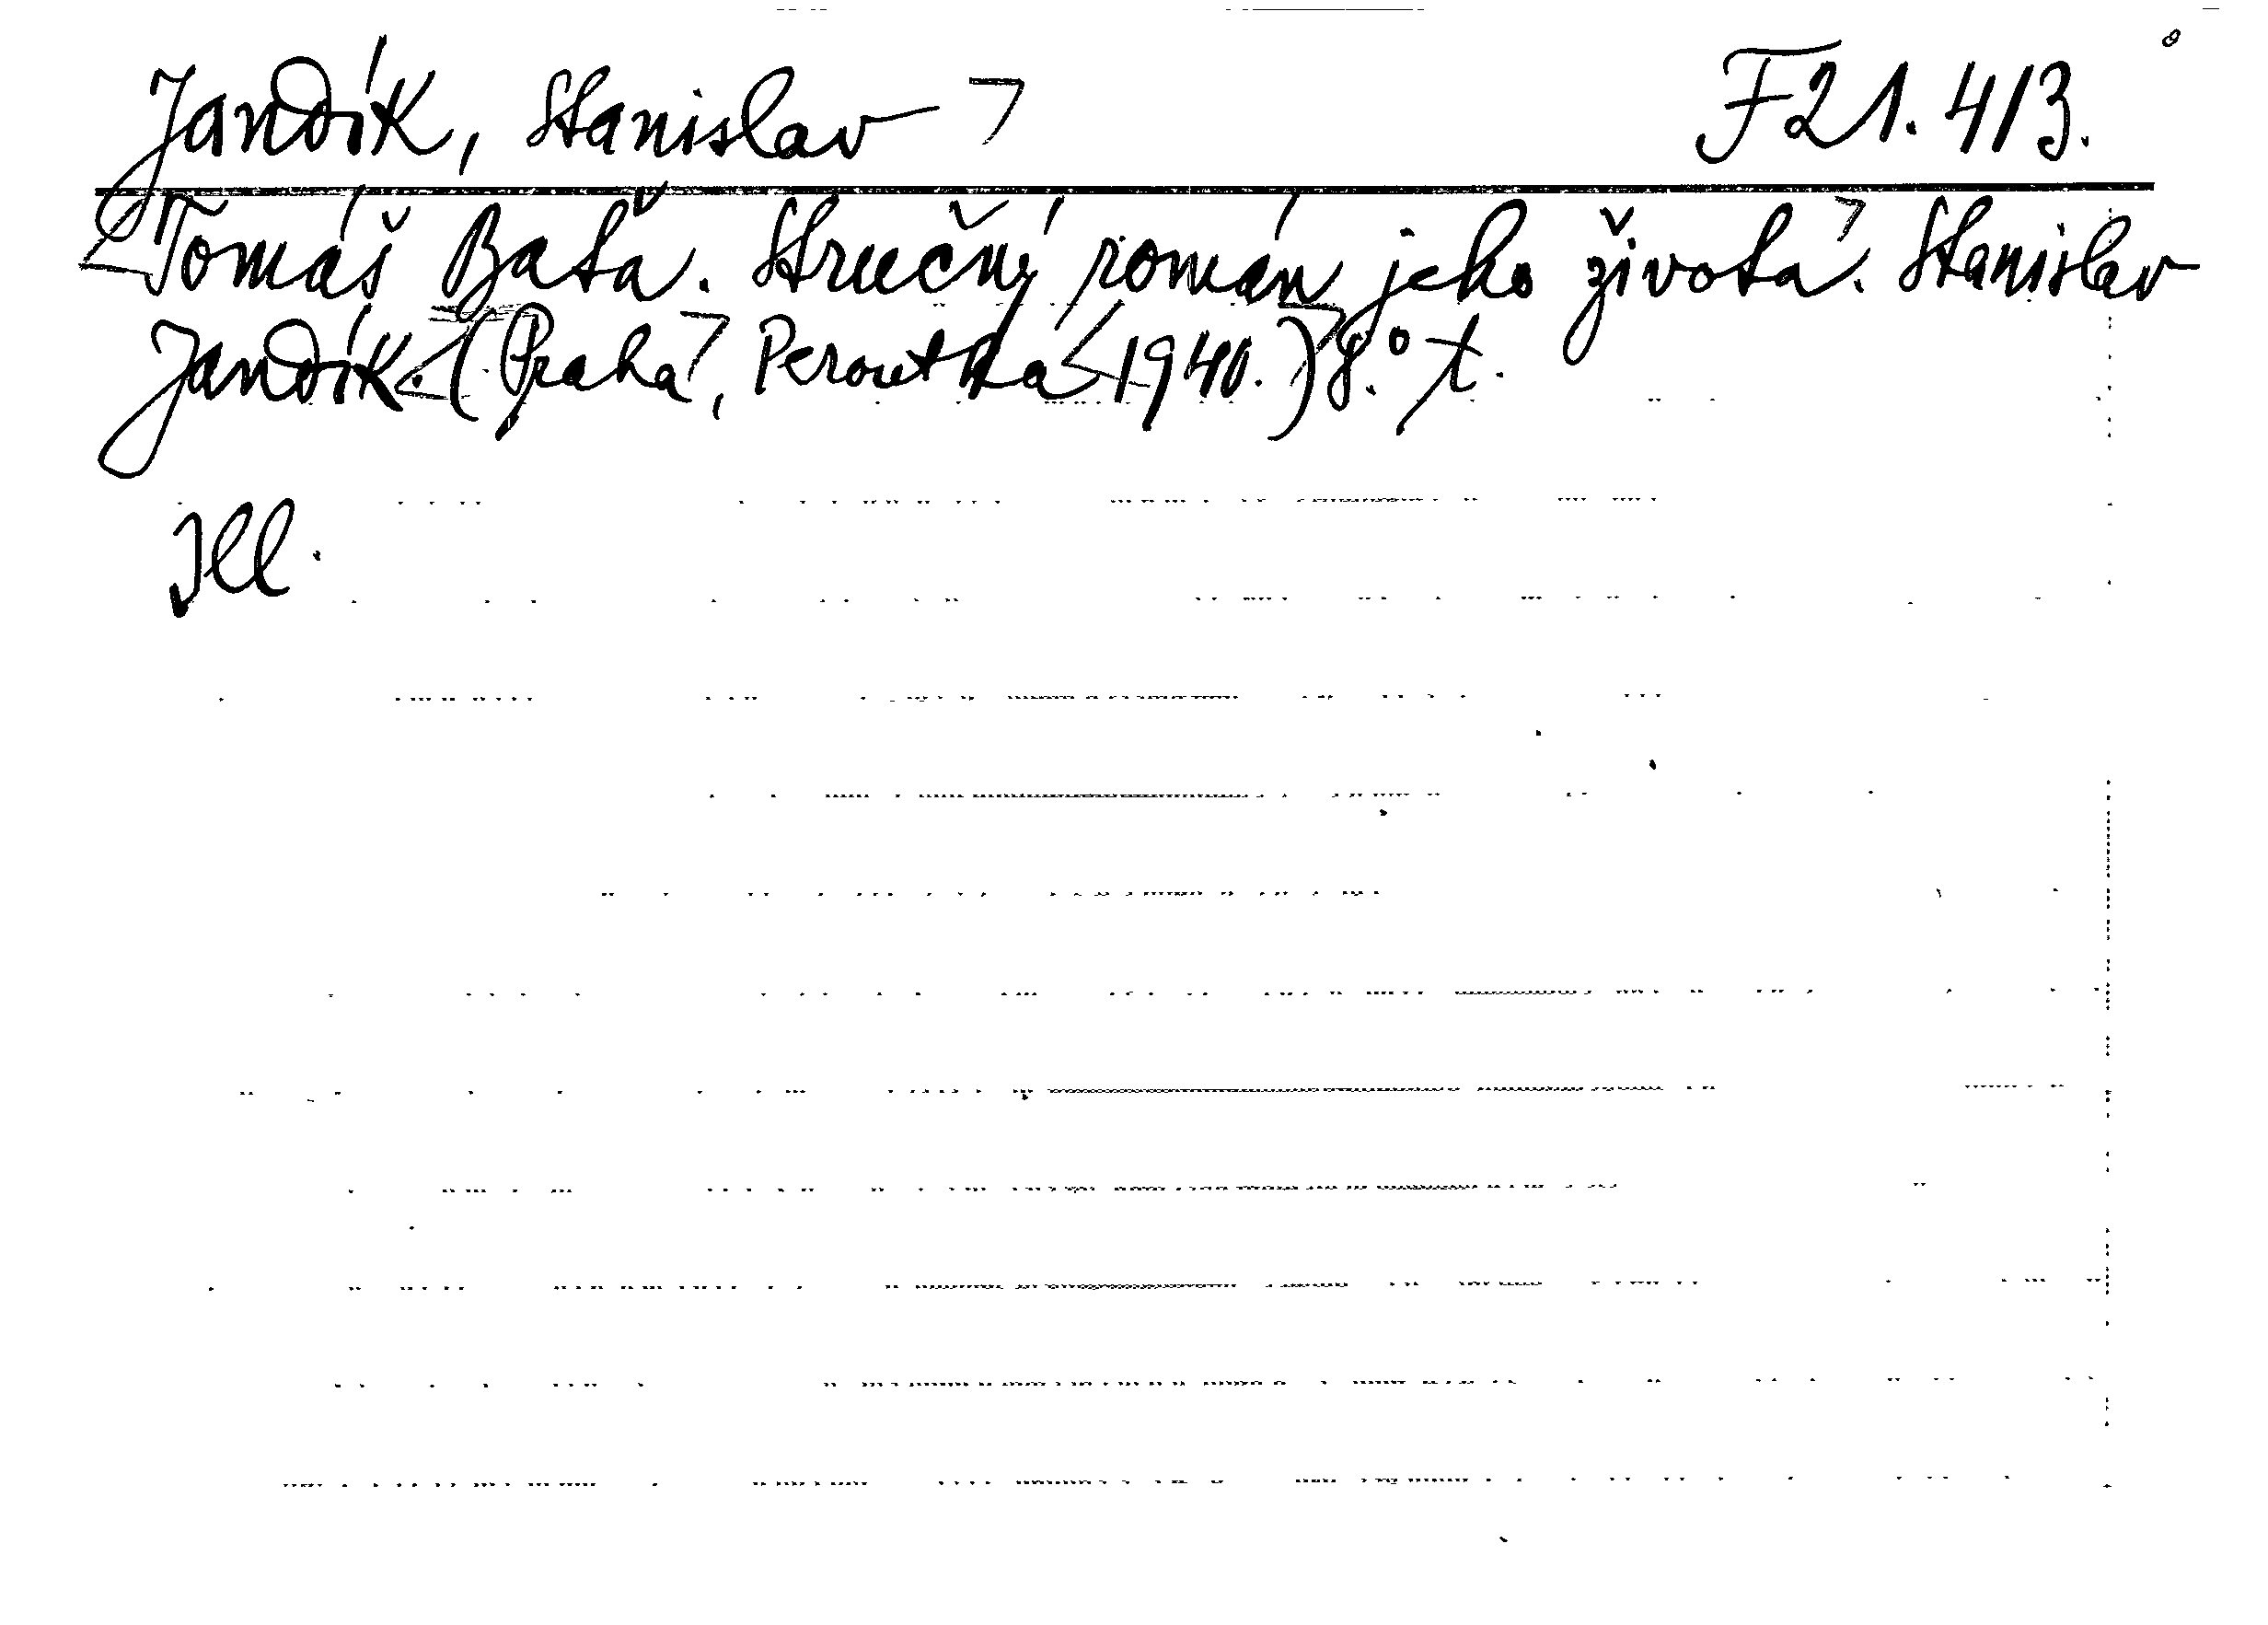 Jandík, Stanislav F21.413.
Tomáš Baťa. Stručný román jeho života. Stanislav
Jandík. (Praha, Peroutka 1940.) 8.° t.
Ill.